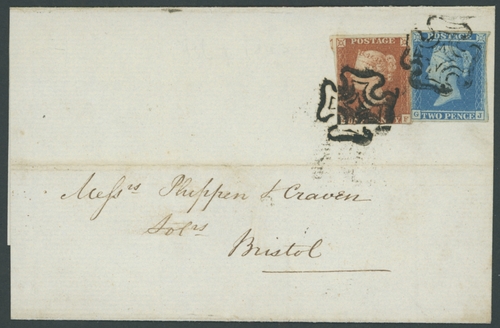 POSTAGE
POSTAGE
TWO PENCE
G J
Messrs Phippen & Craven
Solrs
Bristol